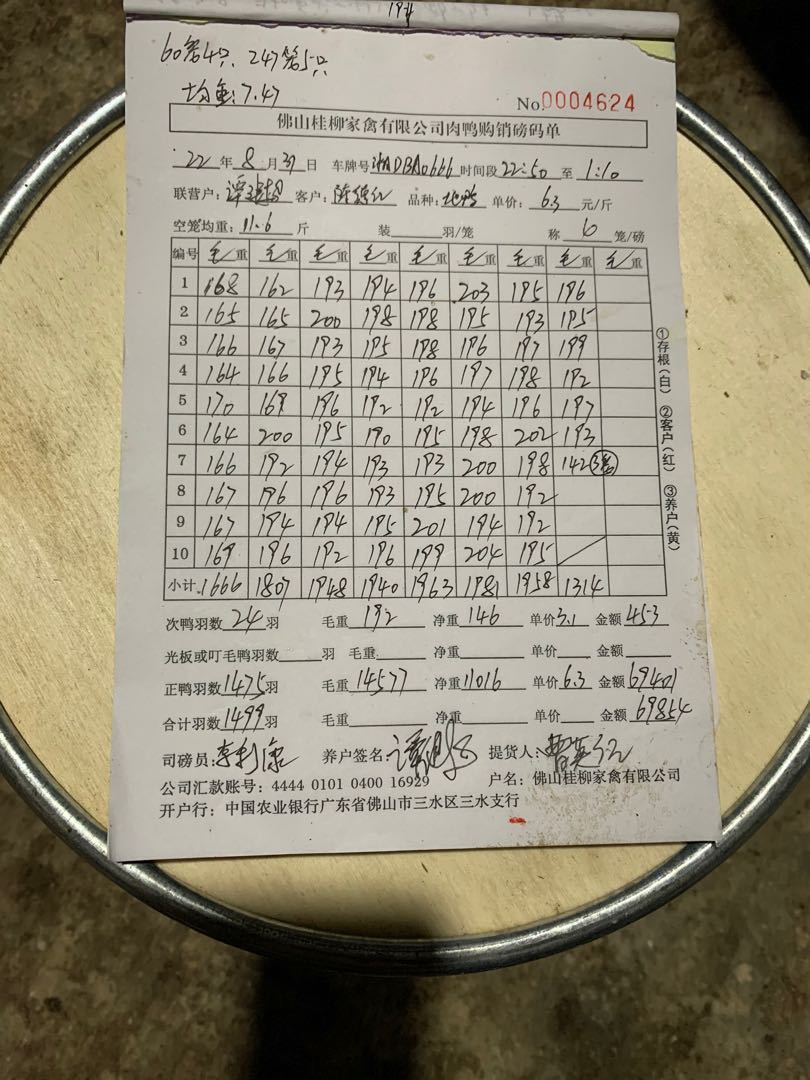 194
60笼4只、247笼5只
均重:7.47
No.0004624
佛山桂柳家禽有限公司肉鸭购销磅码单
22 年 8 月 31 日 车牌号 DBA0666 时间段 22:50 至 1:10
联营户: 谭 客户: 陈 品种: 地鸭 单价: 6.3 元/斤
空笼均重: 11.6 斤 装 羽/笼 称 6 笼/磅
编号 毛重 毛重 毛重 毛重 毛重 毛重 毛重 毛重 毛重
1 168 162 193 194 196 203 195 196
2 165 165 200 198 198 195 193 195
3 166 167 193 195 198 196 197 199
4 164 166 195 194 196 197 198 192
5 170 169 196 192 192 194 196 197
6 164 200 195 190 195 198 202 193
7 166 192 194 193 193 200 198 142
8 167 196 196 193 195 200 192
9 167 194 194 195 201 194 192
10 169 196 192 196 199 204 195
小计 1666 1807 1948 1940 1963 1981 1958 1314
次鸭羽数 24 羽 毛重 192 净重 146 单价 3.1 金额 453
光板或叮毛鸭羽数 羽 毛重 净重 单价 金额
正鸭羽数 1475 羽 毛重 14577 净重 11016 单价 6.3 金额 69401
合计羽数 1499 羽 毛重 净重 单价 金额 69854
司磅员: 李利康 养户签名: 提货人:
公司汇款账号: 4444 0101 0400 16929 户名: 佛山桂柳家禽有限公司
开户行: 中国农业银行广东省佛山市三水区三水支行
①存根(白) ②客户(红) ③养户(黄)